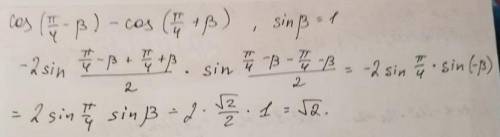 cos(π/4 - β) - cos(π/4 + β) , sin β = 1
-2 sin (π/4 - β + π/4 + β)/2 · sin (π/4 - β - π/4 - β)/2 = -2 sin π/4 · sin(-β)
= 2 sin π/4 sin β = 2 · √2/2 · 1 = √2.